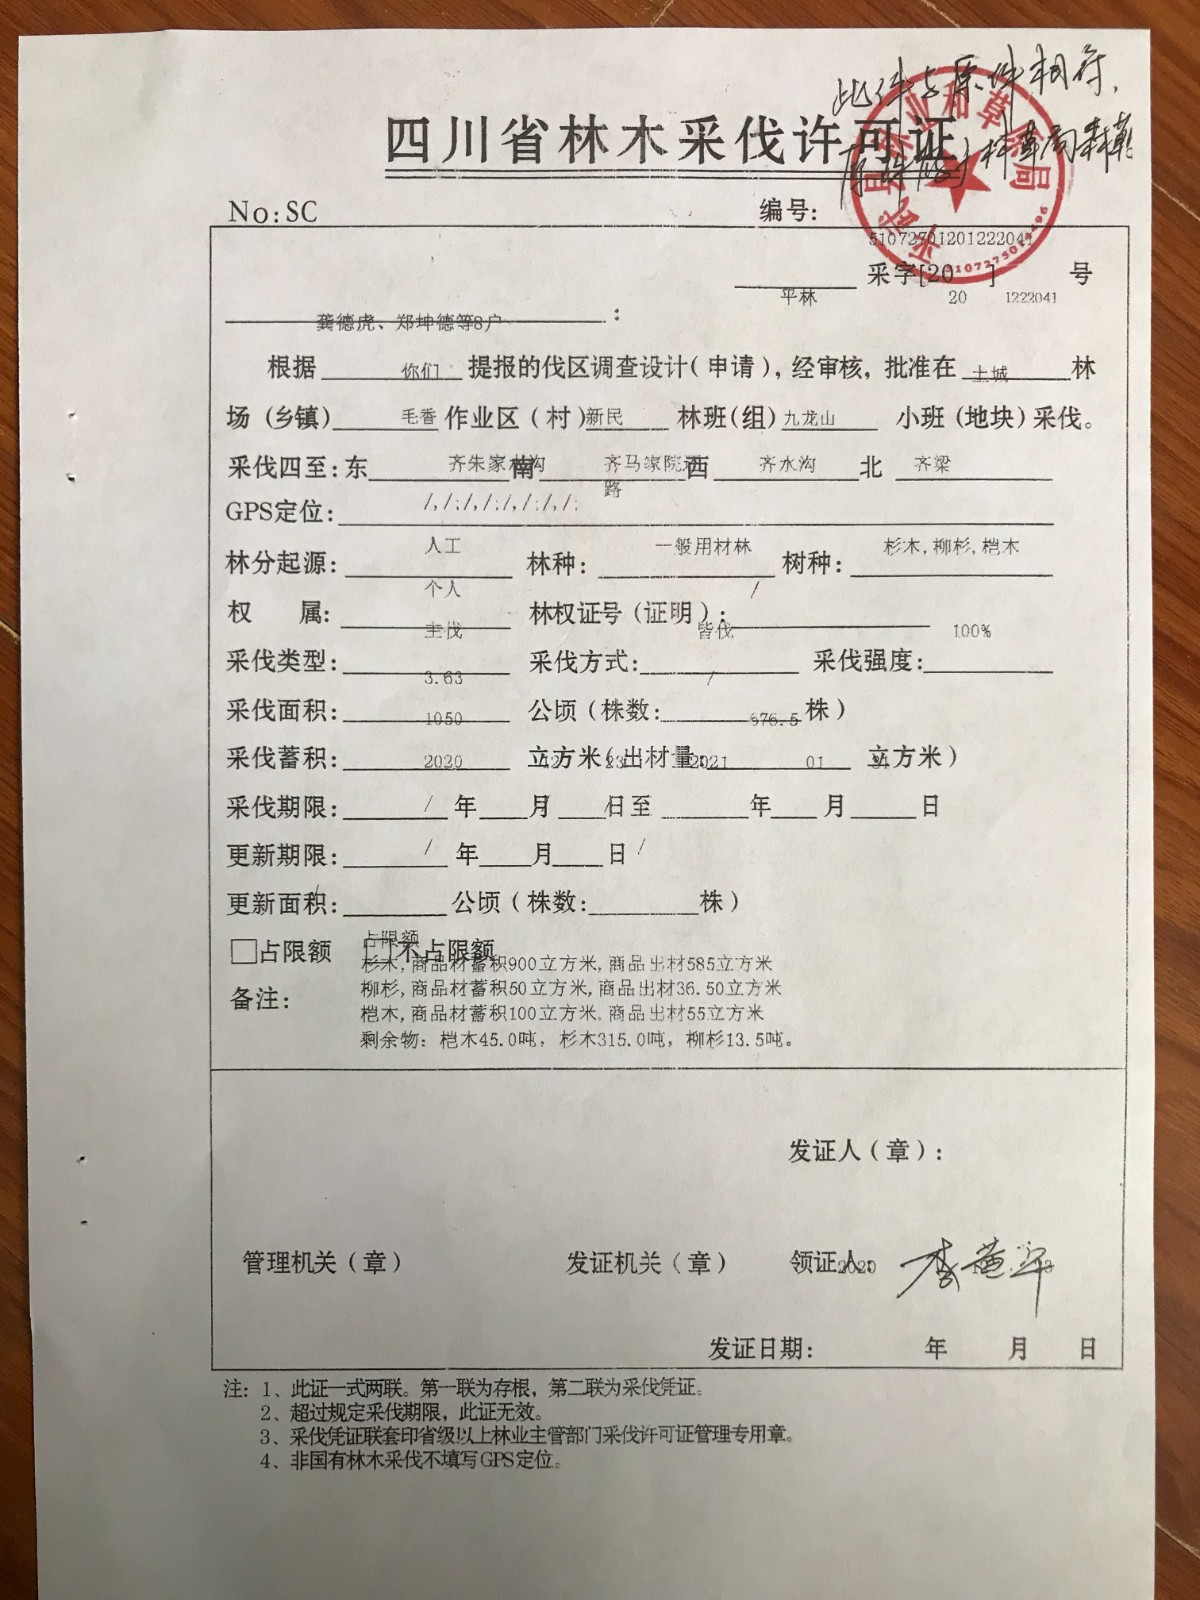 此件与原件相符,
四川省林木采伐许可证
No:SC 编号:
51072701201222041
采字[20 ] 号
平林 20 1222041
龚德虎、郑坤德等8户 :
根据 你们 提报的伐区调查设计(申请),经审核,批准在 土城 林
场(乡镇) 毛香 作业区(村) 新民 林班(组) 九龙山 小班(地块)采伐。
采伐四至:东 齐朱家 沟 南 齐马家院 路 西 齐水沟 北 齐梁
GPS定位: /,/;/,/;/,/;/,/;
人工 一般用材林 杉木,柳杉,桤木
林分起源: 林种: 树种:
个人 /
权 属: 林权证号(证明):
主伐 皆伐 100%
采伐类型: 采伐方式: 采伐强度:
3.63 /
采伐面积: 公顷(株数: 株)
1050 676.5
采伐蓄积: 立方米(出材量: 立方米)
2020 12 23 2021 01
采伐期限: 年 月 日至 年 月 日
/
更新期限: 年 月 日
/ /
更新面积: 公顷(株数: 株)
/
占限额
□占限额 □不占限额
杉木,商品材蓄积900立方米,商品出材585立方米
柳杉,商品材蓄积50立方米,商品出材36.50立方米
备注:
桤木,商品材蓄积100立方米,商品出材55立方米
剩余物: 桤木45.0吨, 杉木315.0吨, 柳杉13.5吨。
发证人(章):
管理机关(章) 发证机关(章) 领证人:
2020
发证日期: 年 月 日
注: 1、此证一式两联。第一联为存根,第二联为采伐凭证。
2、超过规定采伐期限,此证无效。
3、采伐凭证联套印省级以上林业主管部门采伐许可证管理专用章。
4、非国有林木采伐不填写GPS定位。